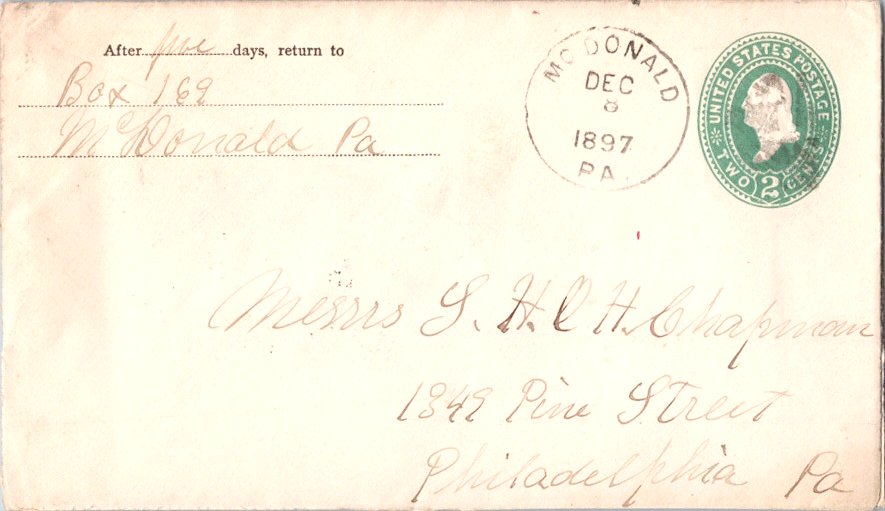 After five days, return to
Box 169
McDonald Pa
MCDONALD
DEC
8
1897
PA.
UNITED STATES POSTAGE
TWO 2 CENTS
Messrs S. H. & H. Chapman
1349 Pine Street
Philadelphia Pa